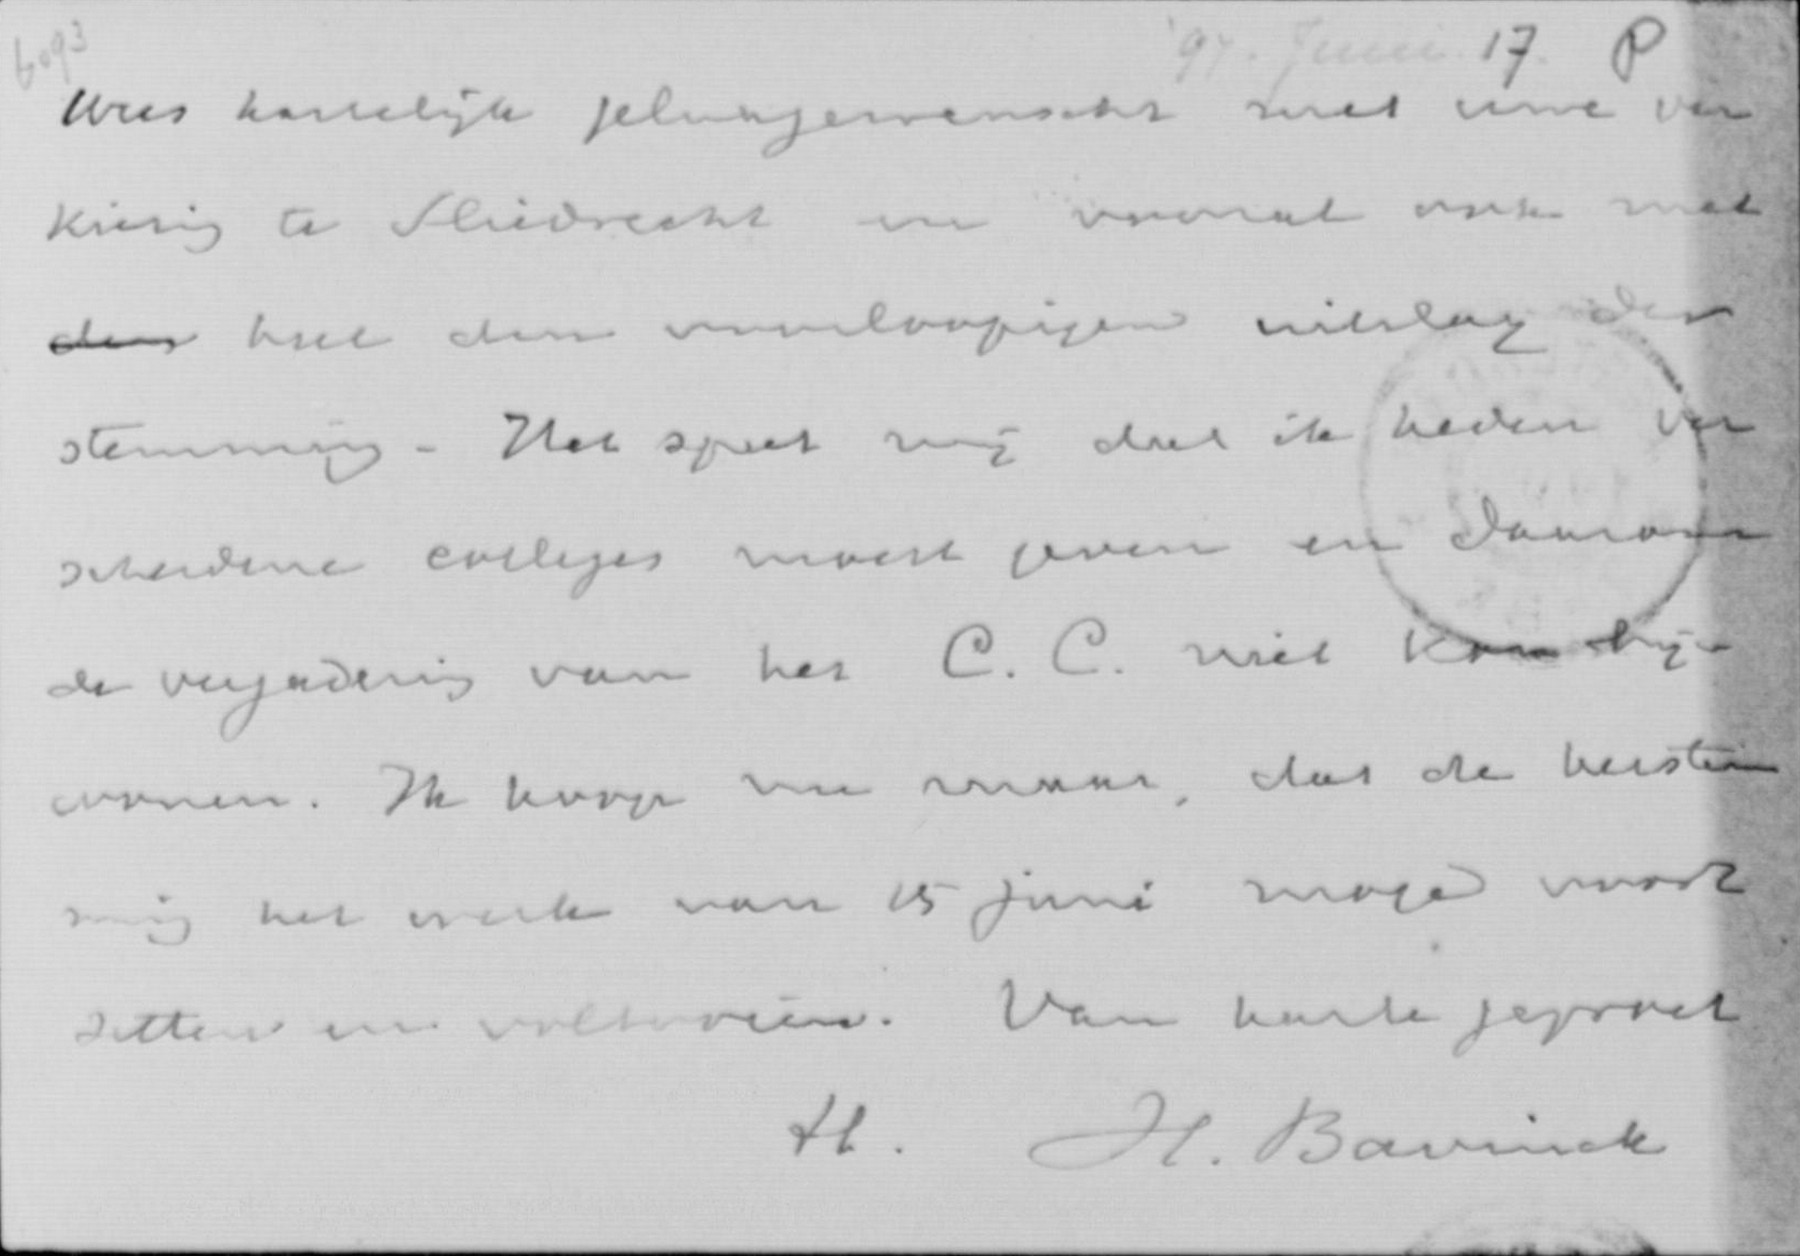 6093
'97. Juni 17. P
Wees hartelijk gelukgewenscht met uwe ver
kiezing te Sliedrecht en vooral ook met
den heel den voorloopigen uitslag der
stemming - Het speet mij dat ik heden ver
scheidene colleges moest geven en daarom
de vergadering van het C. C. niet kon bij-
wonen. Ik hoop nu maar, dat de herstem
ming het werk van 15 juni moge voort
zetten en voltooien. Van harte gegroet
tt. H. Bavinck